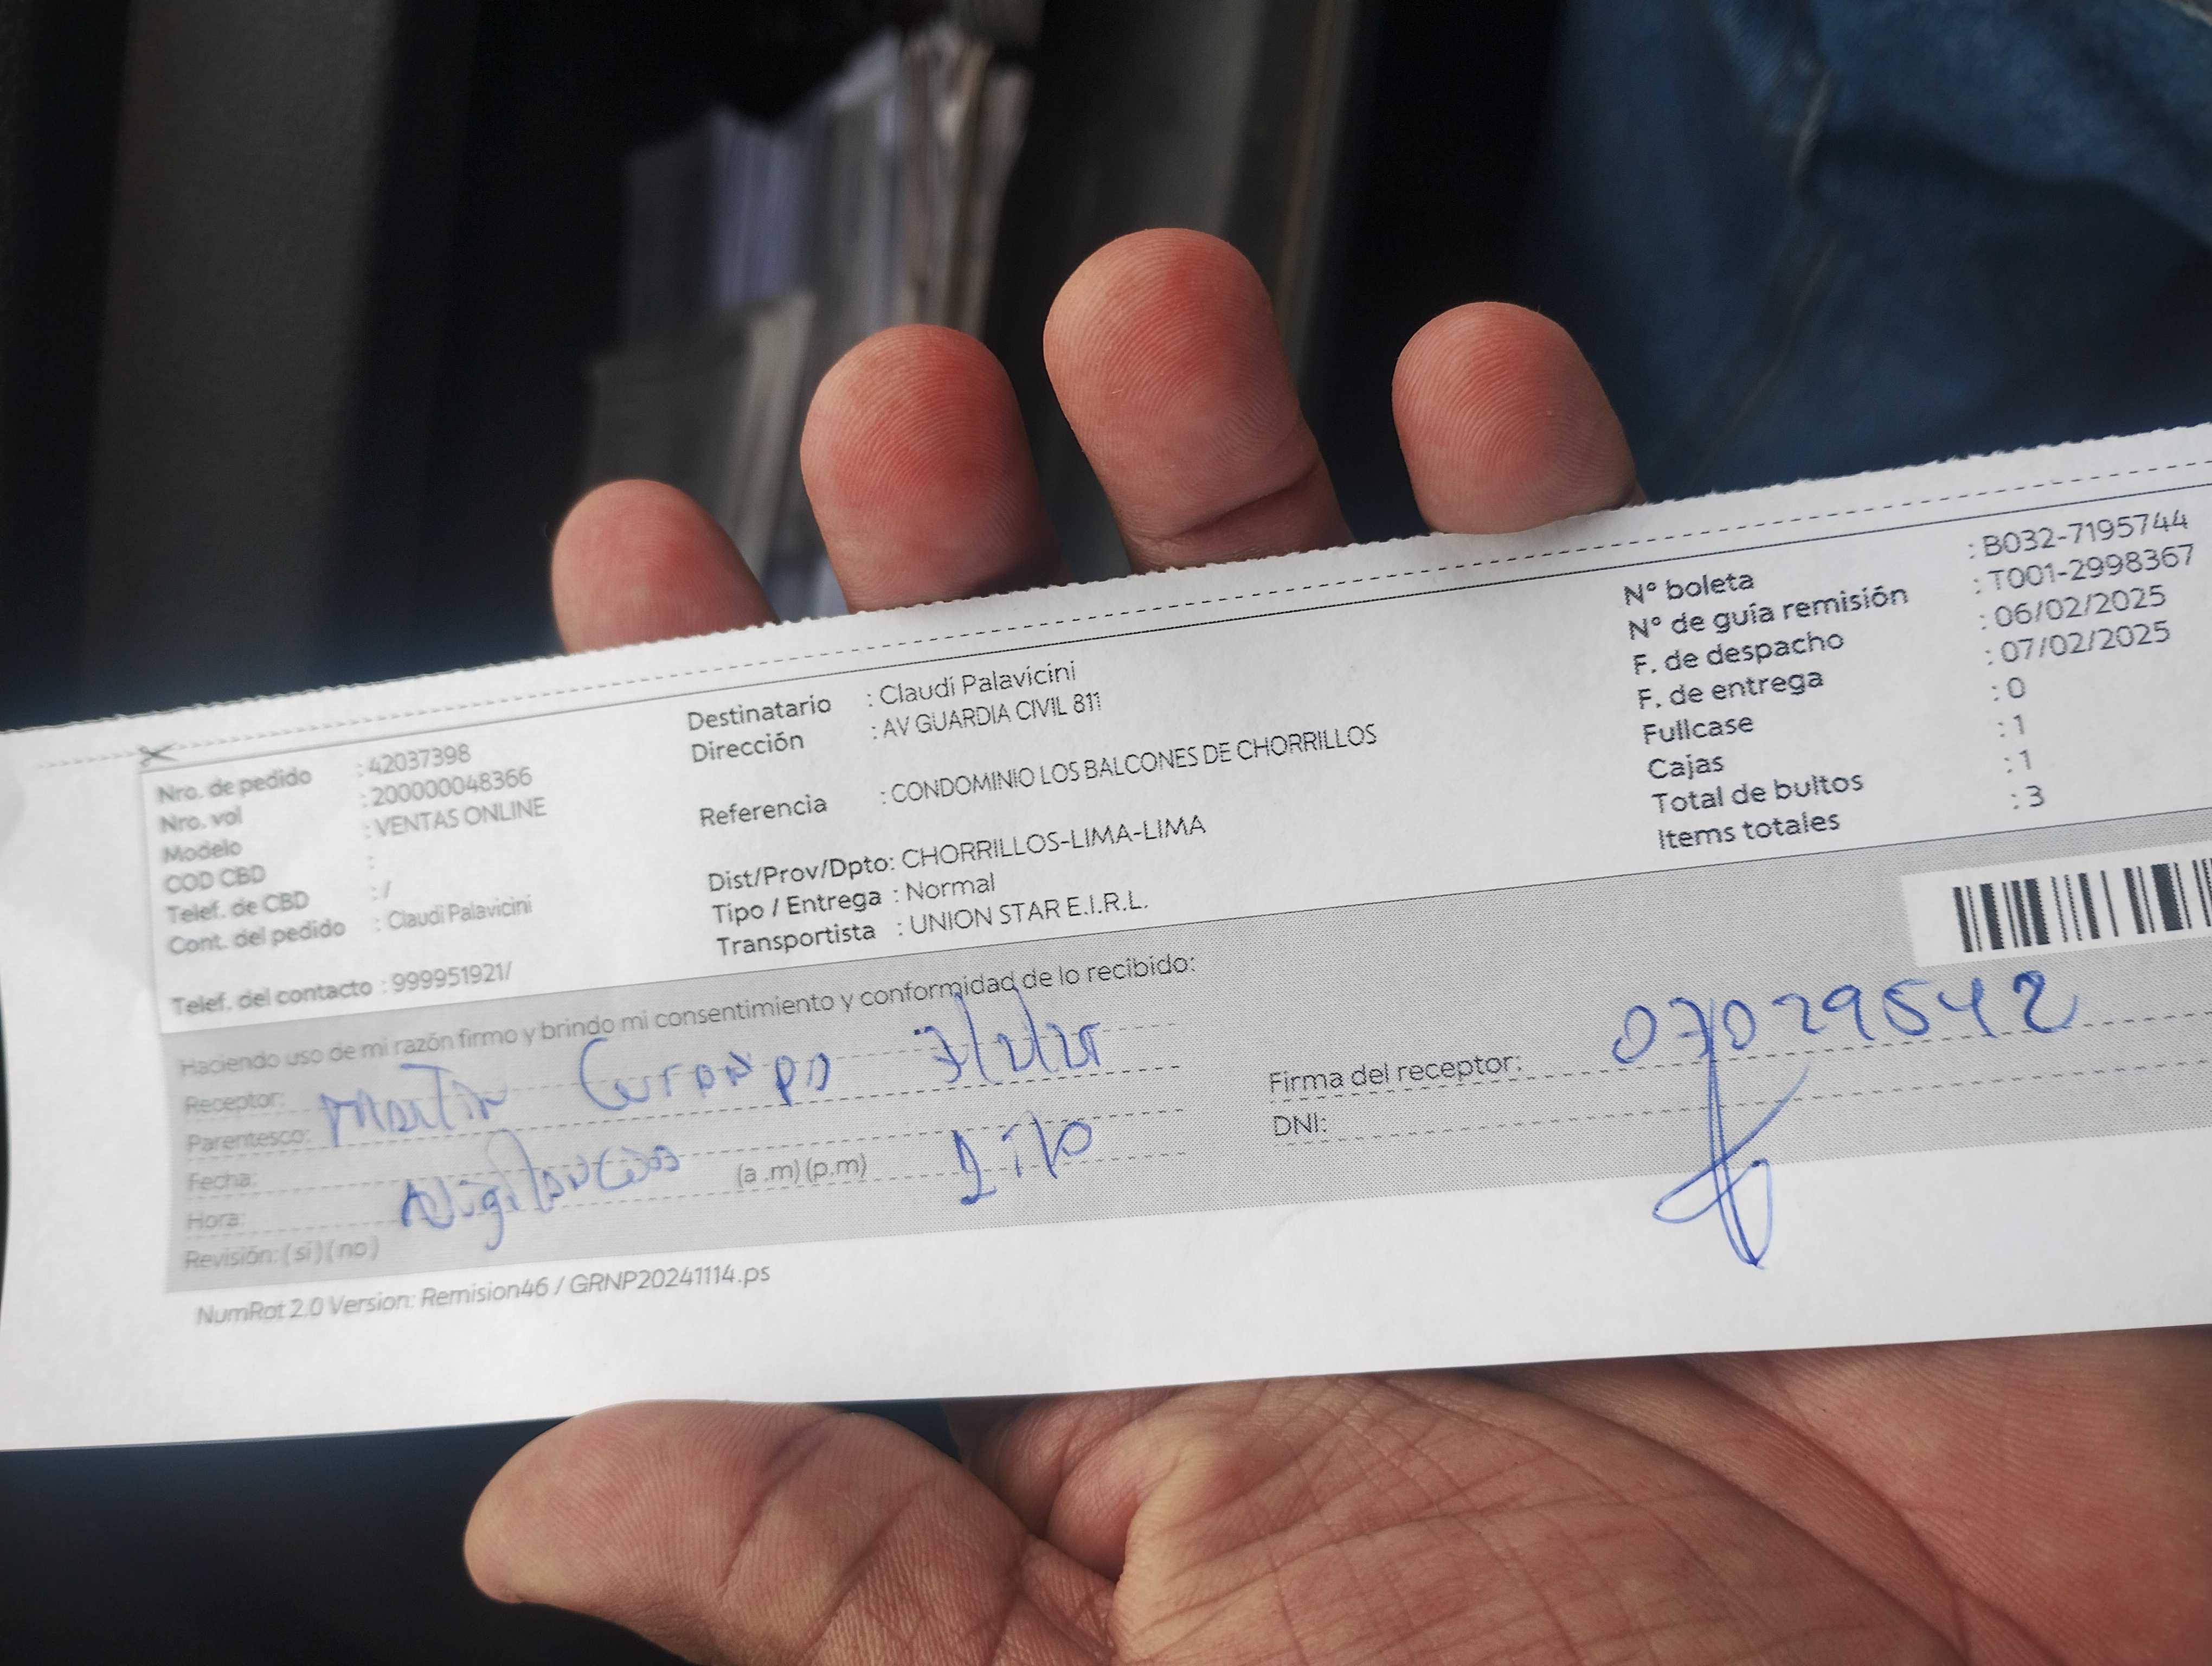 Nro. de pedido : 42037398
Nro. vol : 200000048366
Modelo : VENTAS ONLINE
COD CBD :
Telef. de CBD : /
Cont. del pedido : Claudi Palavicini
Telef. del contacto : 999951921/
Destinatario : Claudi Palavicini
Dirección : AV GUARDIA CIVIL 811
Referencia : CONDOMINIO LOS BALCONES DE CHORRILLOS
Dist/Prov/Dpto: CHORRILLOS-LIMA-LIMA
Tipo / Entrega : Normal
Transportista : UNION STAR E.I.R.L.
N° boleta : B032-7195744
N° de guía remisión : T001-2998367
F. de despacho : 06/02/2025
F. de entrega : 07/02/2025
Fullcase : 0
Cajas : 1
Total de bultos : 1
Items totales : 3
Haciendo uso de mi razón firmo y brindo mi consentimiento y conformidad de lo recibido:
Receptor:
Parentesco: Martin 7/2/25
Fecha:
Hora: (a .m) (p.m)
Revisión: ( si ) ( no )
Firma del receptor: 07029542
DNI:
NumRot 2.0 Version: Remision46 / GRNP20241114.ps